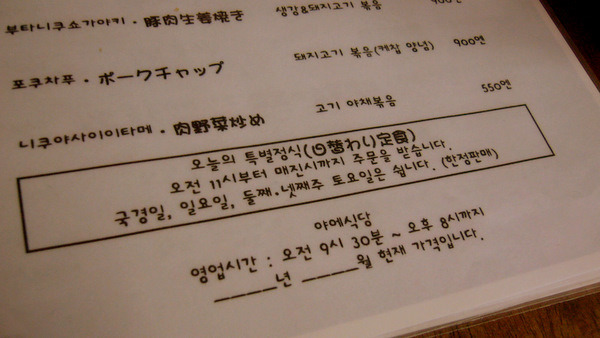 부타니쿠쇼가야키・豚肉生姜焼き 생강&돼지고기 볶음
포쿠챠푸・ポークチャップ 돼지고기 볶음(케찹 양념) 900엔
니쿠야사이이타메・肉野菜炒め 고기 야채볶음 550엔
오늘의 특별정식(日替わり定食)
오전 11시부터 매진시까지 주문을 받습니다.
국경일, 일요일, 둘째.넷째주 토요일은 쉽니다. (한정판매)
야메식당
영업시간 : 오전 9시 30분 ~ 오후 8시까지
______년 ______월 현재 가격입니다.